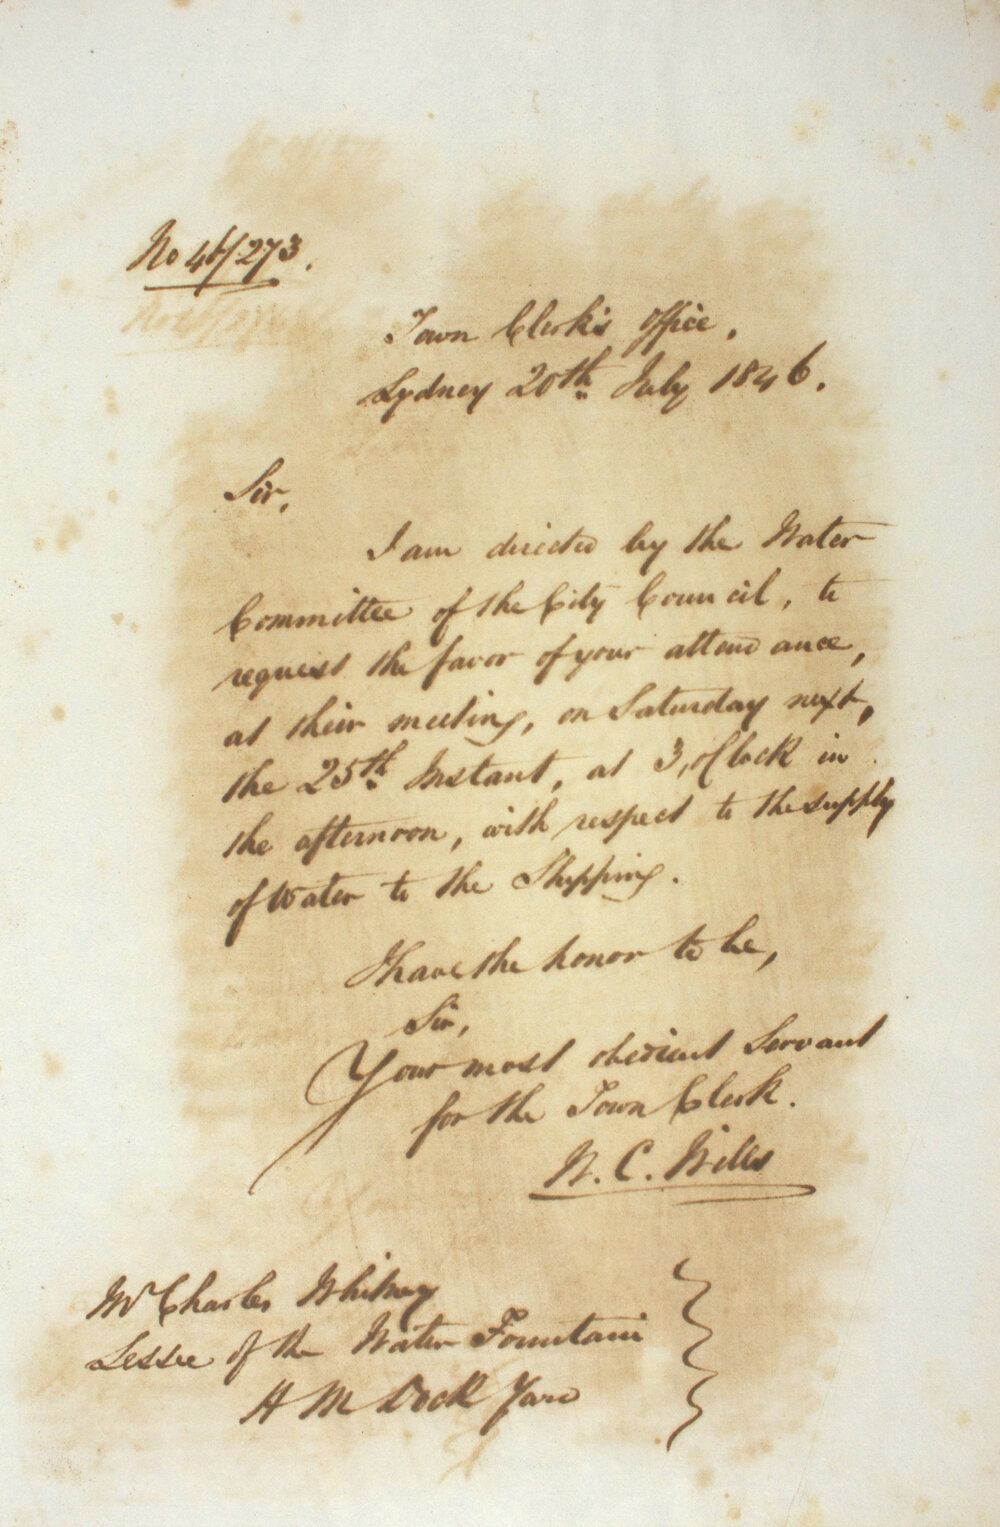 No 46/273.
Town Clerk's Office,
Sydney 20th July 1846.
Sir,
I am directed by the Water
Committee of the City Council, to
request the favor of your attendance,
at their meeting, on Saturday next,
the 25th Instant, at 3,O'Clock in
the afternoon, with respect to the supply
of Water to the Shipping.
I have the honor to be,
Sir,
Your most obedient Servant
for the Town Clerk.
W. C. Wills
Mr Charles Whitney
Lessee of the Water Fountain
H M Dock Yard